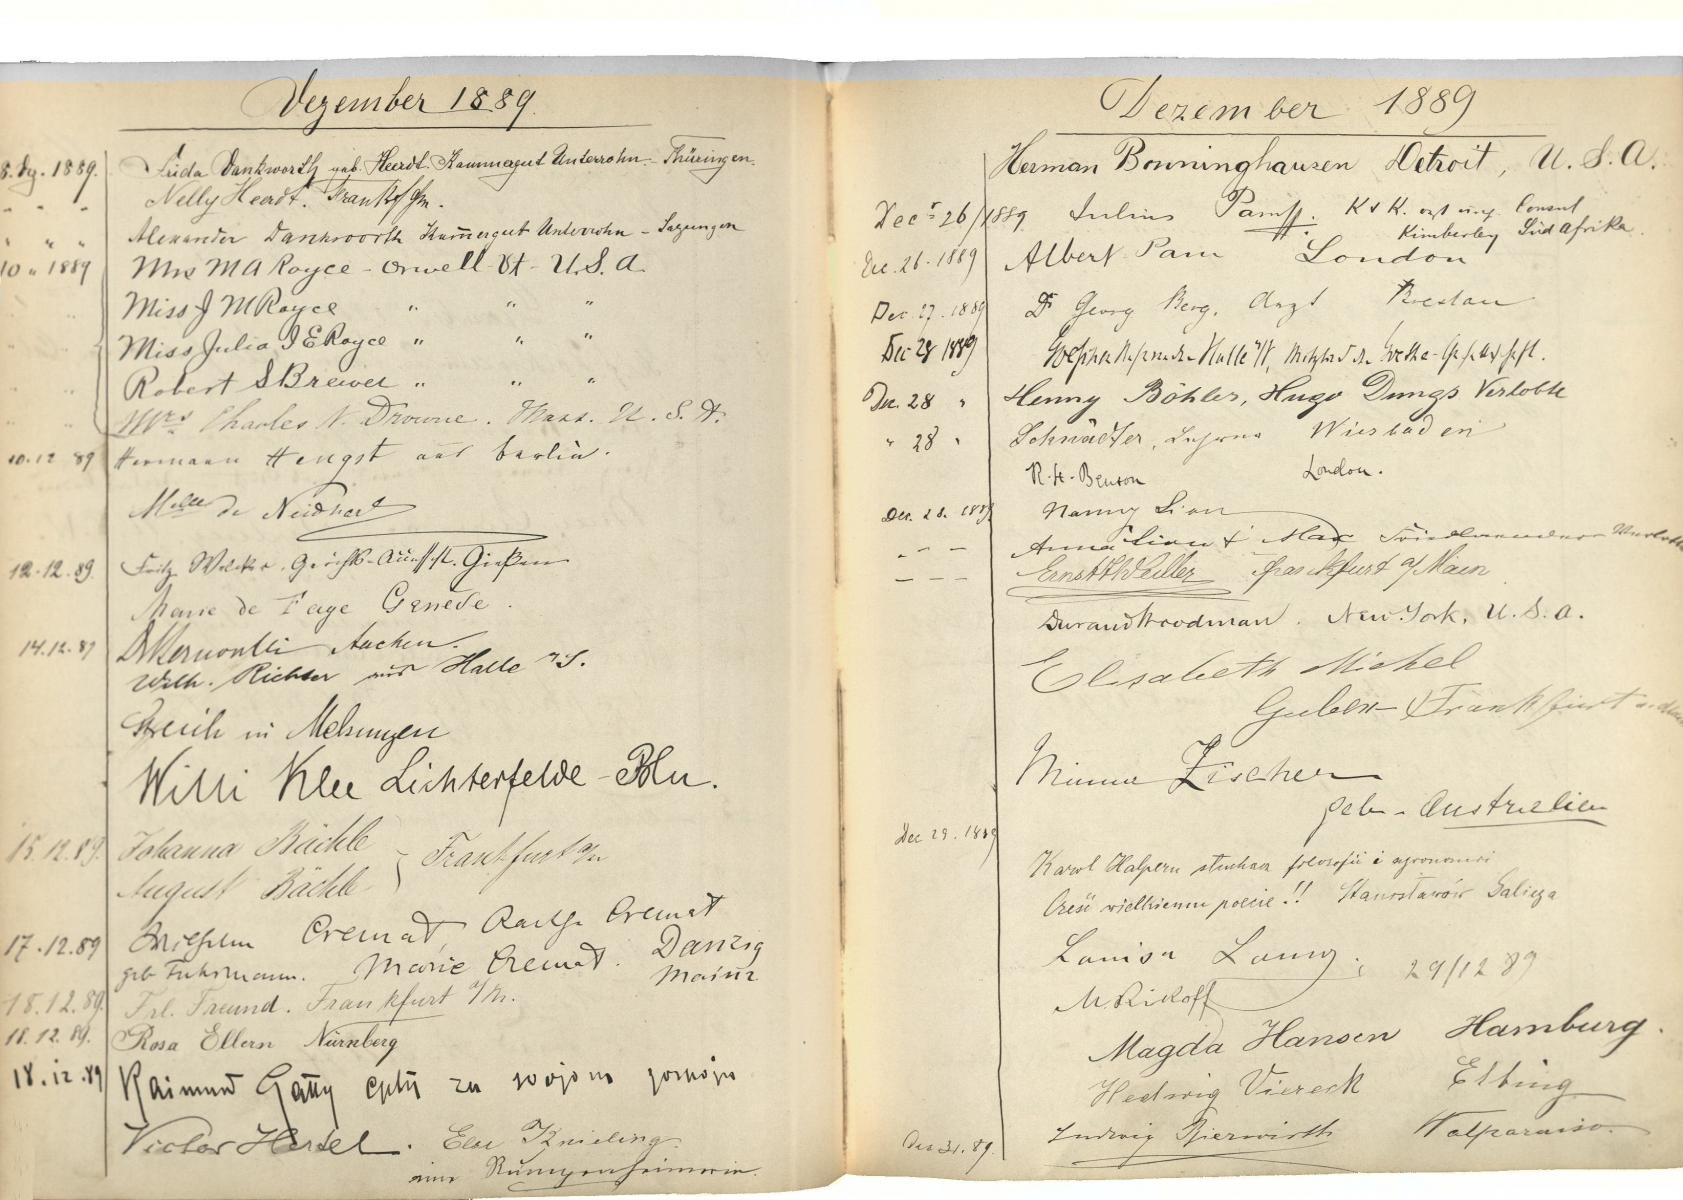 Dezember 1889.
8. Dz. 1889. Frida Dankworth geb. Heerdt. Kammergut Unterrohn - Thüringen.
" " " Nelly Heerdt. Frankf. a/m.
" " " Alexander Dankworth Kammergut Unterrohn - Salzungen
10 " 1889 Mrs M A Royce - Orwell - Vt - U.S.A.
Miss J M Royce " " "
Miss Julia I E Royce " " "
Robert S Brewer " " "
Mrs Charles N. Drowne. Mass. U.S.A.
10.12 89 Hermann Hengst aus Berlin.
Melle de Neidhart
12.12.89. Fritz Welcker, Gießen
Marie de Faye Genève.
14.12.89 Aachen.
Wilh. Richter aus Halle a/S.
in Melsungen
Willi Klee Lichterfelde - Bln.
15.12.89. Johanna Bächle Frankfurt a/m
August Bächle
17.12.89 Wilhelm Cremat, Cremat
geb Fuhrmann. Marie Cremat. Danzig
Mainz
18.12.89. Frl. Freund. Frankfurt a/m.
18.12.89. Rosa Ellern Nürnberg
18.12.89 Raimund
Victor Hertel. Else Knieling.
eine
Dezember 1889
Herman Bonninghausen Detroit, U.S.A.
Dec 26/1889 Julius Pam K & K. Consul
Kimberley Südafrika.
Dec. 26. 1889 Albert Pam London
Dec. 27. 1889 Dr Georg Berg, Arzt Breslau
Dec 28 1889 Halle a/S, Mitglied der Goethe-Gesellschaft.
Dec. 28 " Henny Böhler, Hugo Dungs Verlobte
" 28 " Wiesbaden
R. H. Benson London.
Dec. 28. 1889 Nanny Lion
" " " Anna Lion & Max Friedlaender Verlobte
" " " Ernst Weiller Frankfurt a/Main
Durand Woodman. New York, U.S.A.
Elisabeth Michel
Guben Frankfurt a.
Minna Fischer
geb. Australien
Dec 29. 1889
Karol Halpern słuchacz filozofii i agronomii
Cześć wielkiemu poecie!! Stanisławów Galicya
Louisa Lanny. 29/12 89
M. Rikoff
Magda Hansen Hamburg.
Hedwig Viereck Elbing
Dec 31. 89. Ludwig Bierwirth Valparaiso.